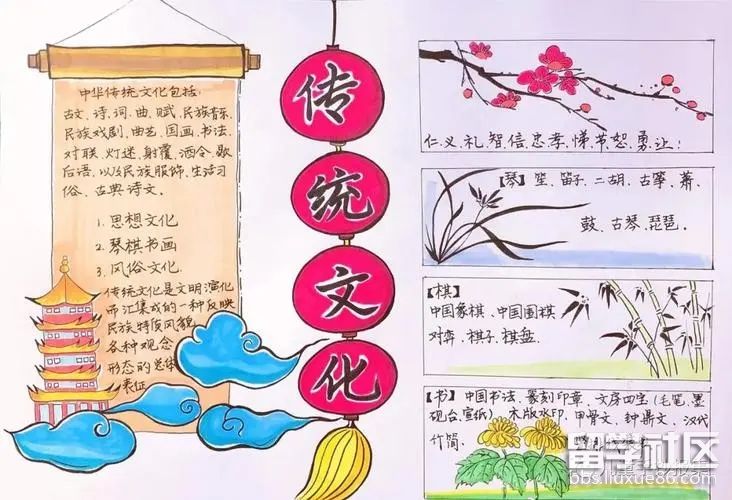 中华传统文化包括:
古文、诗、词、曲、赋、民族音乐、
民族戏剧、曲艺、国画、书法、
对联、灯谜、射覆、酒令、歇
后语、以及民族服饰、生活习
俗、古典诗文.
1. 思想文化
2. 琴棋书画
3. 风俗文化.
传统文化是文明演化
而汇集成的一种反映
民族特质风貌
各种观念
形态的总体
表征
传统文化
仁、义、礼、智、信、忠、孝、悌、节、恕、勇、让;
【琴】笙、笛子、二胡、古筝、萧、
鼓、古琴、琵琶.
【棋】
中国象棋、中国围棋
对弈、棋子、棋盘.
【书】中国书法、篆刻印章、文房四宝(毛笔、墨、
砚台、宣纸)、木版水印、甲骨文、钟鼎文、汉代
竹简、
留学社区
bbs.liuxue86.com